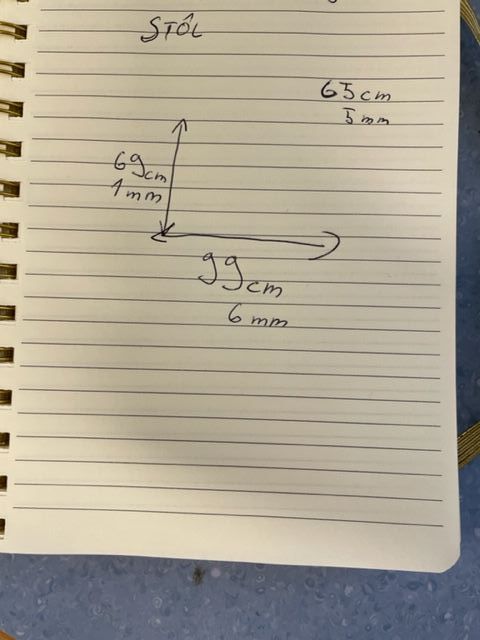 STÔL
65cm
5mm
69cm
1mm
99cm
6mm